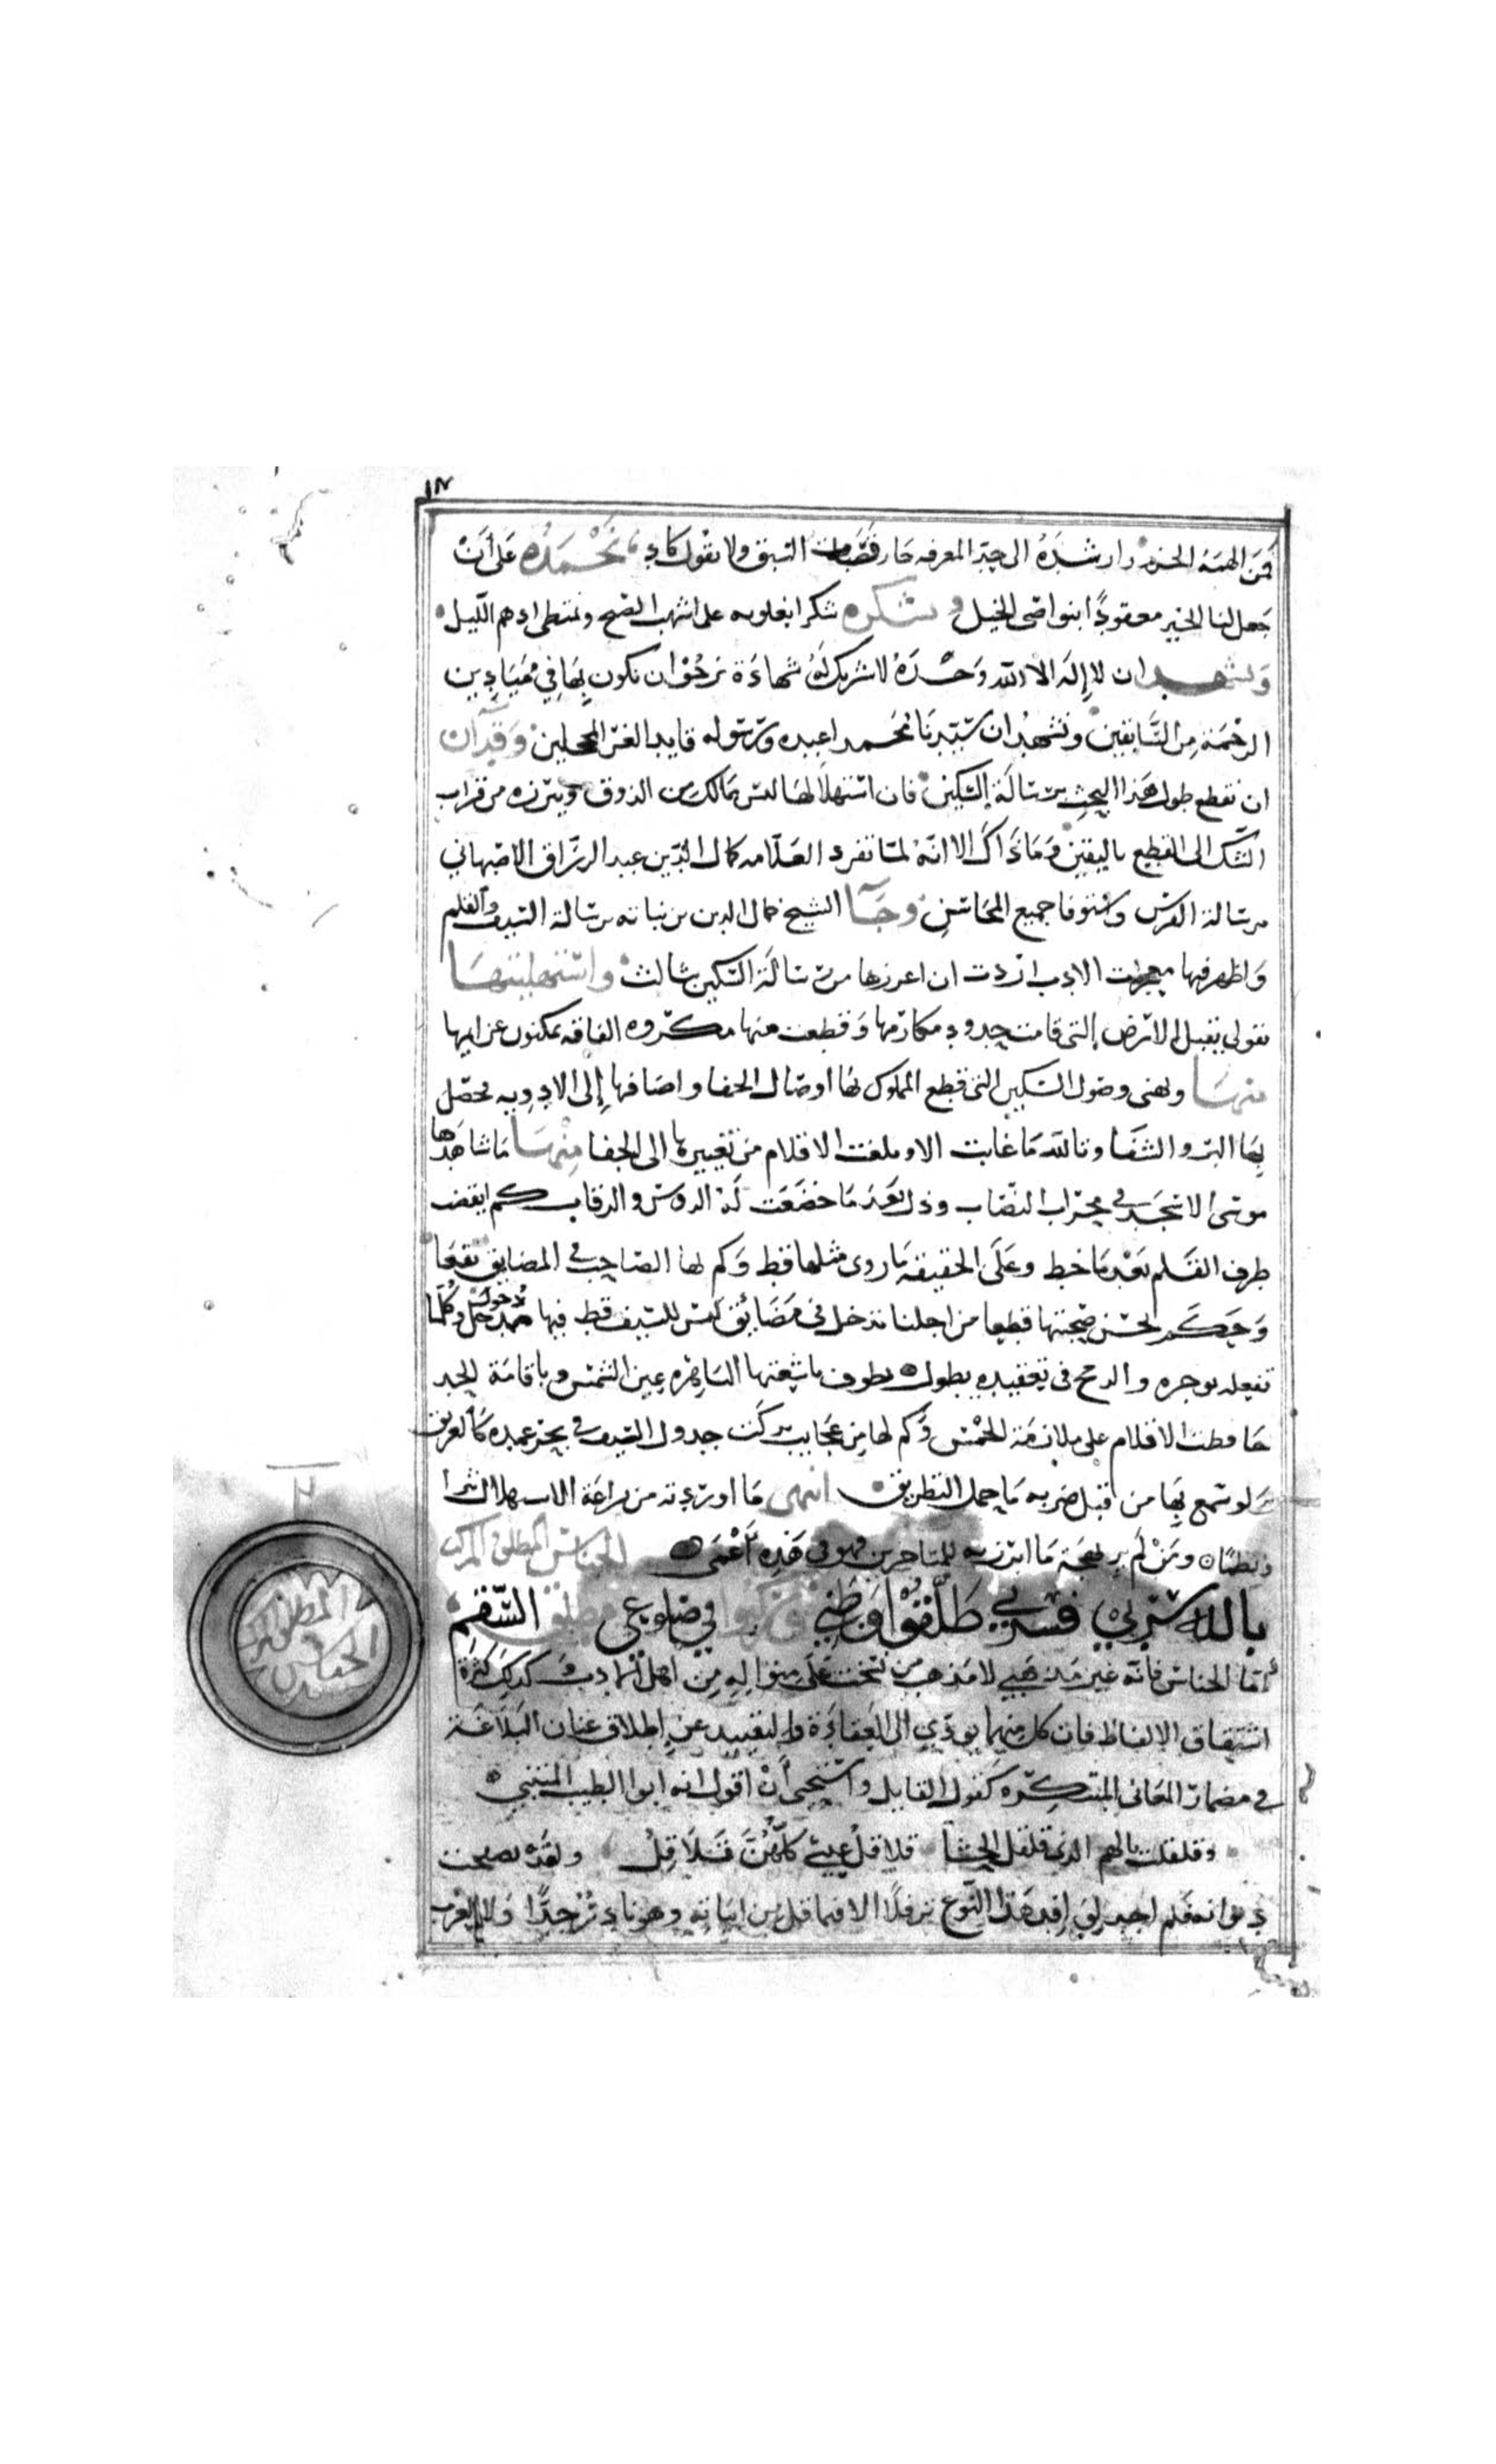 ١٨
فمن الهمه الحزم وارشده الى حيّز المعرفه حاز قصبات السبق ولا نقول كاد نَحْمَدُه عَلى أنْ
جعل لنا الخير معقودًا بنواصى الخيل ونشكره شكرا نعلو به على اشهب الصبح ونمتطى ادهم الليل
ونشهد ان لا إله الا الله وَحْدَهُ لا شريك لَهُ شهادَة نرجُوا ان نكون بِهَا في مَيَادِين
الرحْمَة مِن السَّابقين ونشهدُ ان سَيّدنَا مُحَمدا عبده ورسوله قايد الغرّ المحجلين وقد آن
ان نقطع طول هَذا البحث برسَالَة السّكين فان استهلالها لمس بمالك من الذوق وبرزه من قراب
الشك الى القطع باليقين وَمَا ذَاكَ الا انهُ لمّا تفرد العَلّامه كمال الدّين عبد الرزّاق الاصبهاني
برسَالة القوس واستوفا جميع المحَاسن وجَآ الشيخ جمال الدين بن نباته برسَالة السّيف والقلم
وَاظهر فيها معجزات الادب اردت ان اعززها من رسَالَة السّكين بثالث واستهليتهَا
بقولى يقبل الارض التى قامت حدود مكارمها وَقطعت عنها مكروه الفاقه بمكنون عزايمها
منهَا وينهى وصُول السّكين التى قطع المملوك بهَا اوصَال الجفا واضافها إلى الادوِيه فحصّل
بِهَا البرء والشفَا وتاللّه مَا غابت الا وبلغت الاقلام من تغييرها الى الجفا مِنْهَا مَا شاهَدهَا
موسى الا سَجَدَ في محرَاب النصَاب وذل بَعْدَ مَا خضَعَت لَهُ الروس والرقاب كم ايقضت
طرف القَلم بَعْد مَا خط وعَلى الحقيقة مَا روى مثلها قط وَكم لها الصّاحب في المضايق نفعَا
وَحَكَم لحسن صُحبتها قطعا من اجلنا تدخل في مَضَائق لَيْس للسّيف قط فيها مدخل وَكلّمَا
تفعله توجزه والرمح فى تعقيده يطول تطوف باشعتها السّاهره عين الشمس وباقامَة الحد
حافظت الاقلام على ملازمَة الخمْس وَكم لها من عَجَايب تركت جدول السّيف في بحر غمده كَالغريق
وَلو سمع بهَا من قبل ضربه مَا حمل التطريق انتهى مَا اوردته من براعَة الاستهلال نثرا
ونظمًا ومَنْ لَم ير بهجَة مَا ابرزته للمتاخرين فهو في هَذِه اعْمَى الجناس المطلق والمركب
بالله سربي فسربي طَلّقوا وَطني وركّبوا في ضلوعي مطلق السّقم
أمّا الجناس فانه غير مَذهَبي لا مَذهب من نسَجْت عَلَى منوالهِ مِن اهل الادب وَ كذلك كثرة
اشتقاق الالفاظ فان كل مِنهمَا يودّي الى العقادَة والتقييد عَن إطلاق عنان البَلاغَة
في مضمار المعَانى المبتكرَه كقول القايل واسْتحيى أنْ اقول انه ابو الطيب المتنبي
وقلقلت بالهم الذى قلقل الحشا قلاقل عيس كلّهُنّ قَلَاقِلُ ولقَدْ تصفحت
ديوانه فلم اجد لوافِد هَذَا النّوع نزلًا الا فيما قل من ابيَاته وهو نادِرٌ جدًّا وَلا العَرب
الجناس
المطلق والمركب